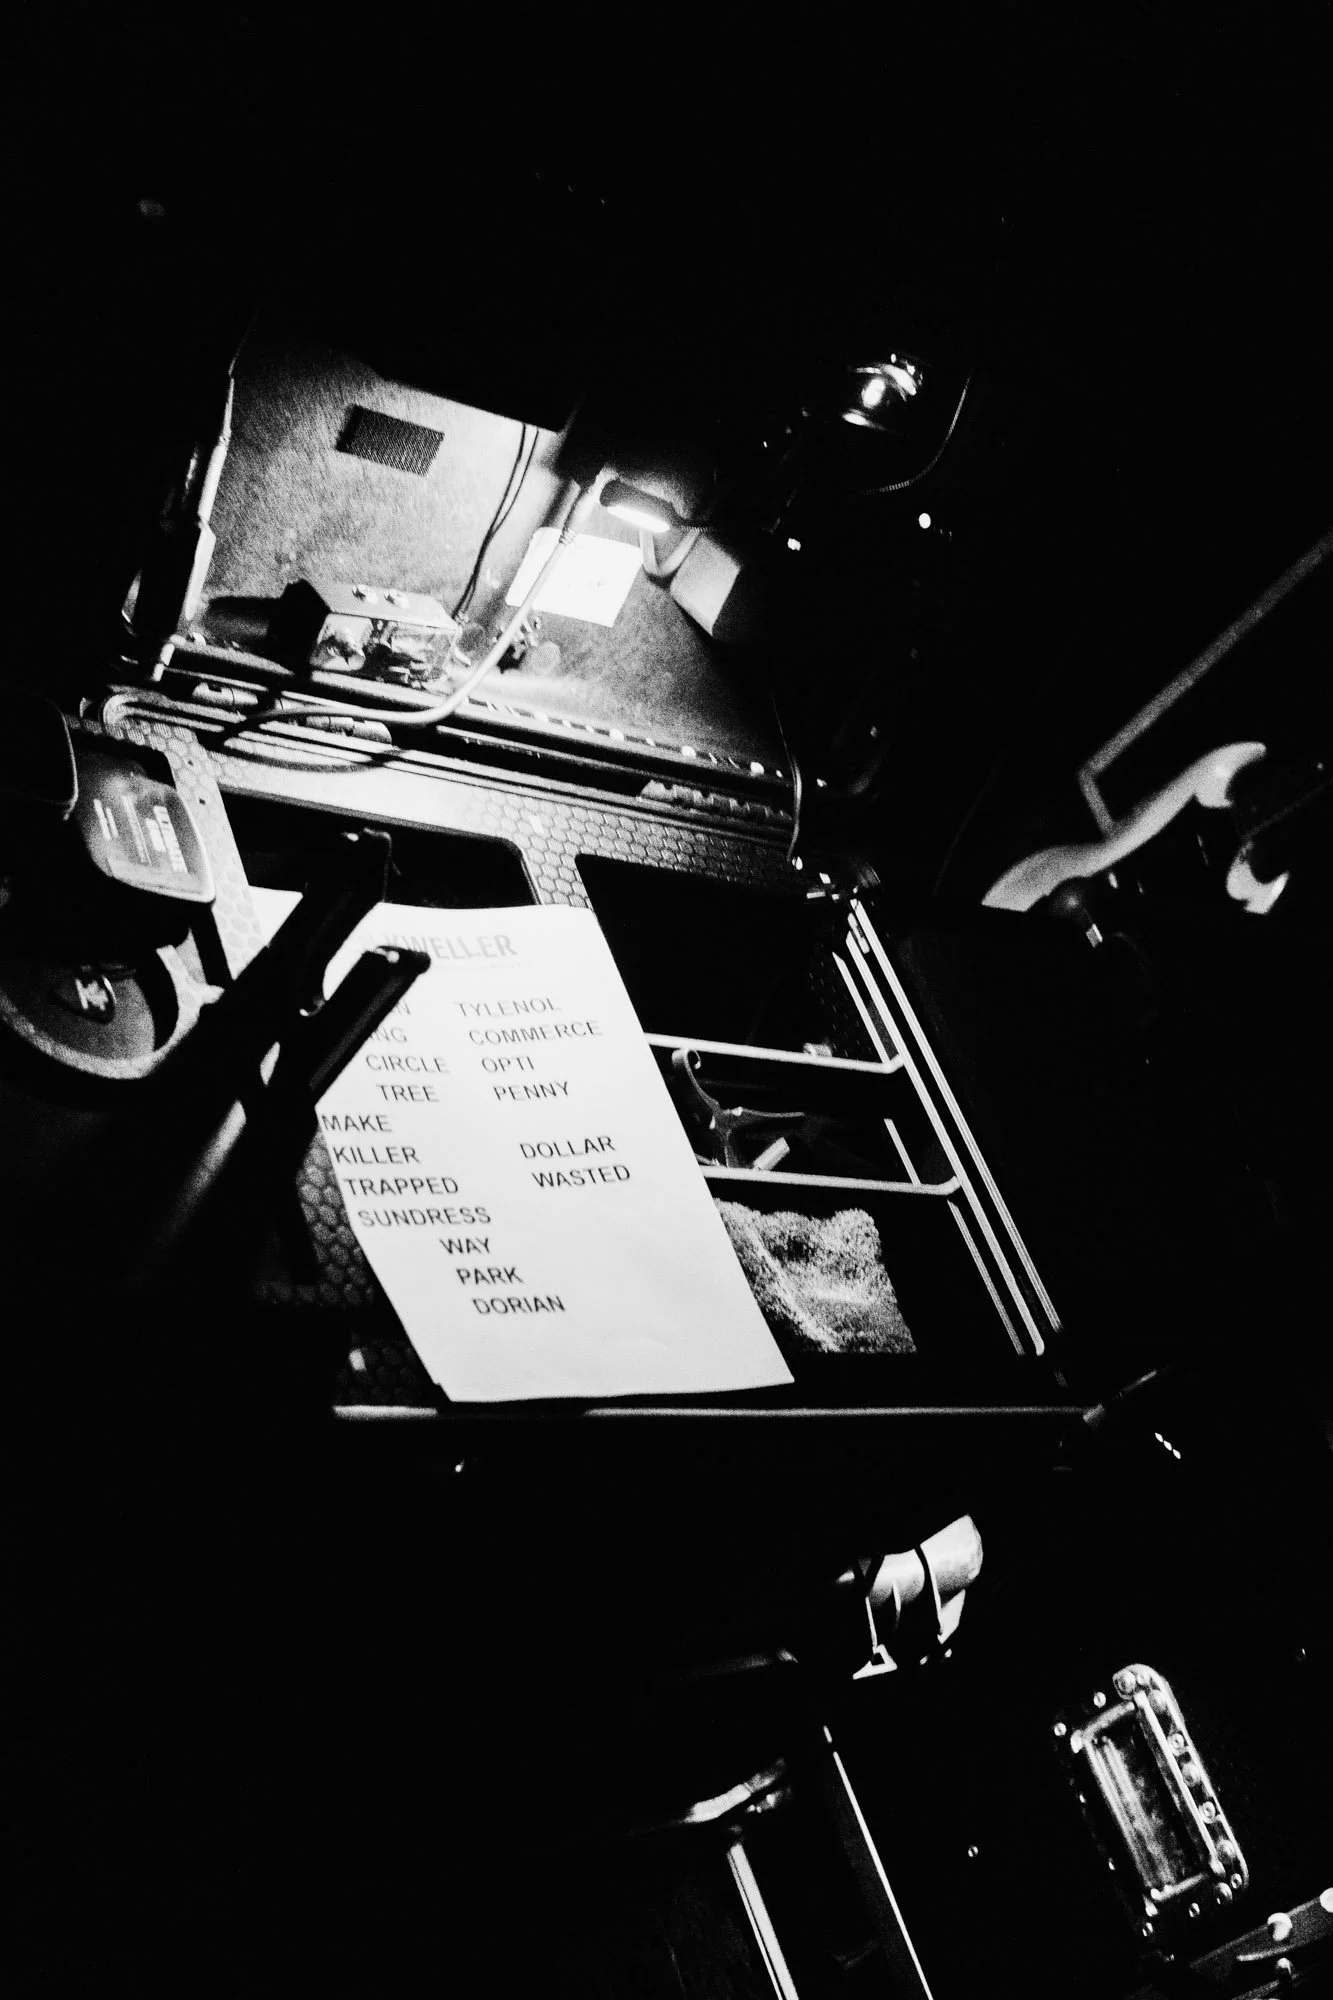 KWELLER
TYLENOL
COMMERCE
CIRCLE OPTI
TREE PENNY
MAKE
KILLER DOLLAR
TRAPPED WASTED
SUNDRESS
WAY
PARK
DORIAN